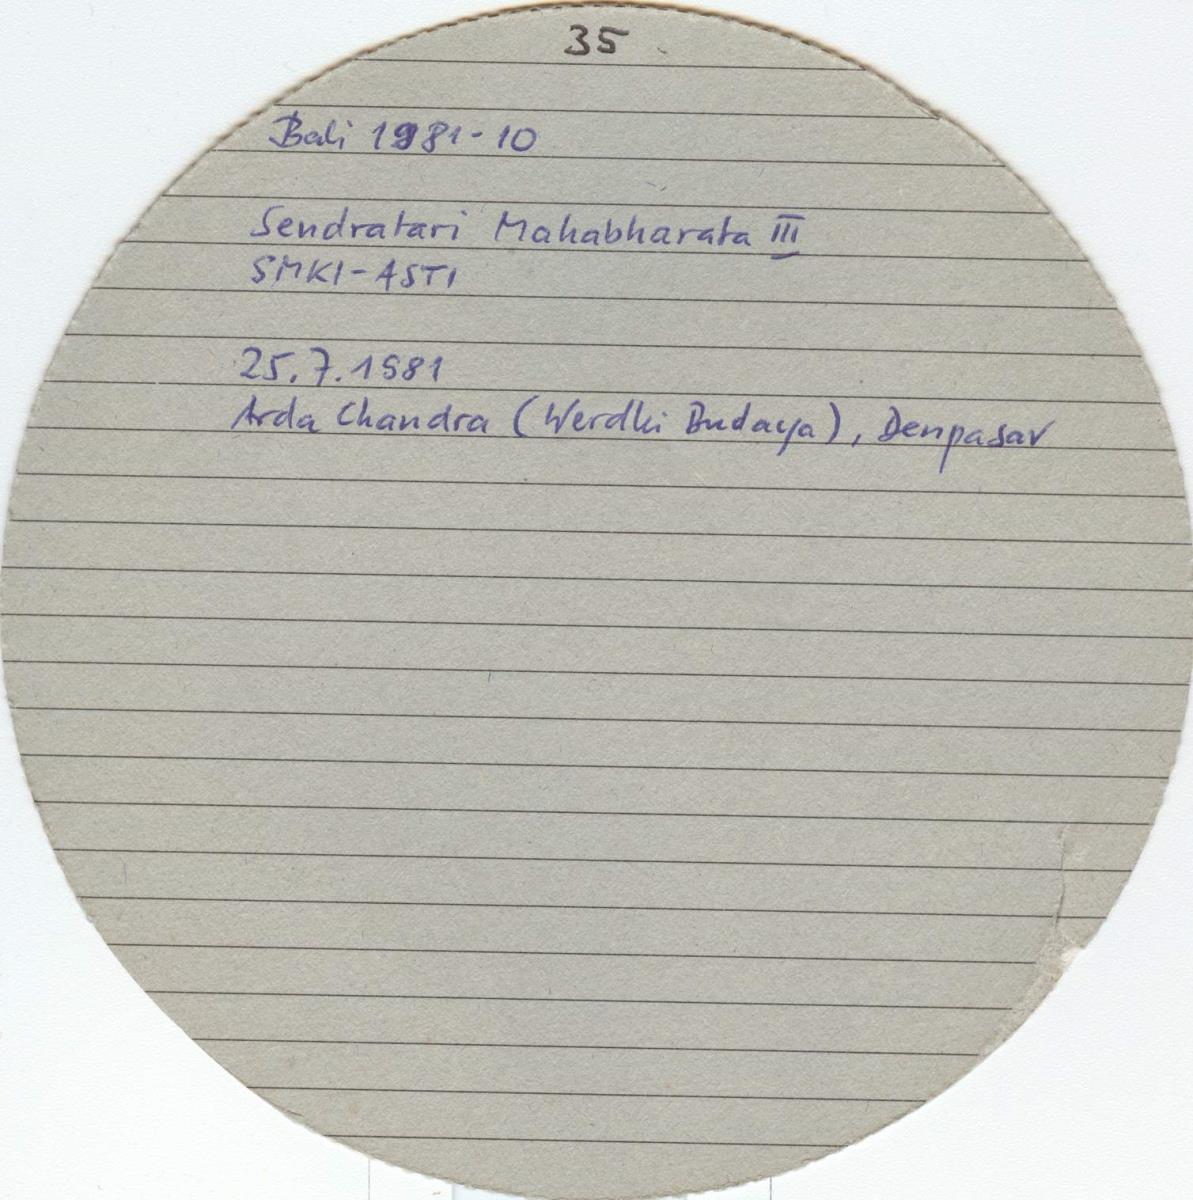 35
Bali 1981-10
Sendratari Mahabharata III
SMKI-ASTI
25.7.1981
Arda Chandra (Werdhi Budaya), Denpasar